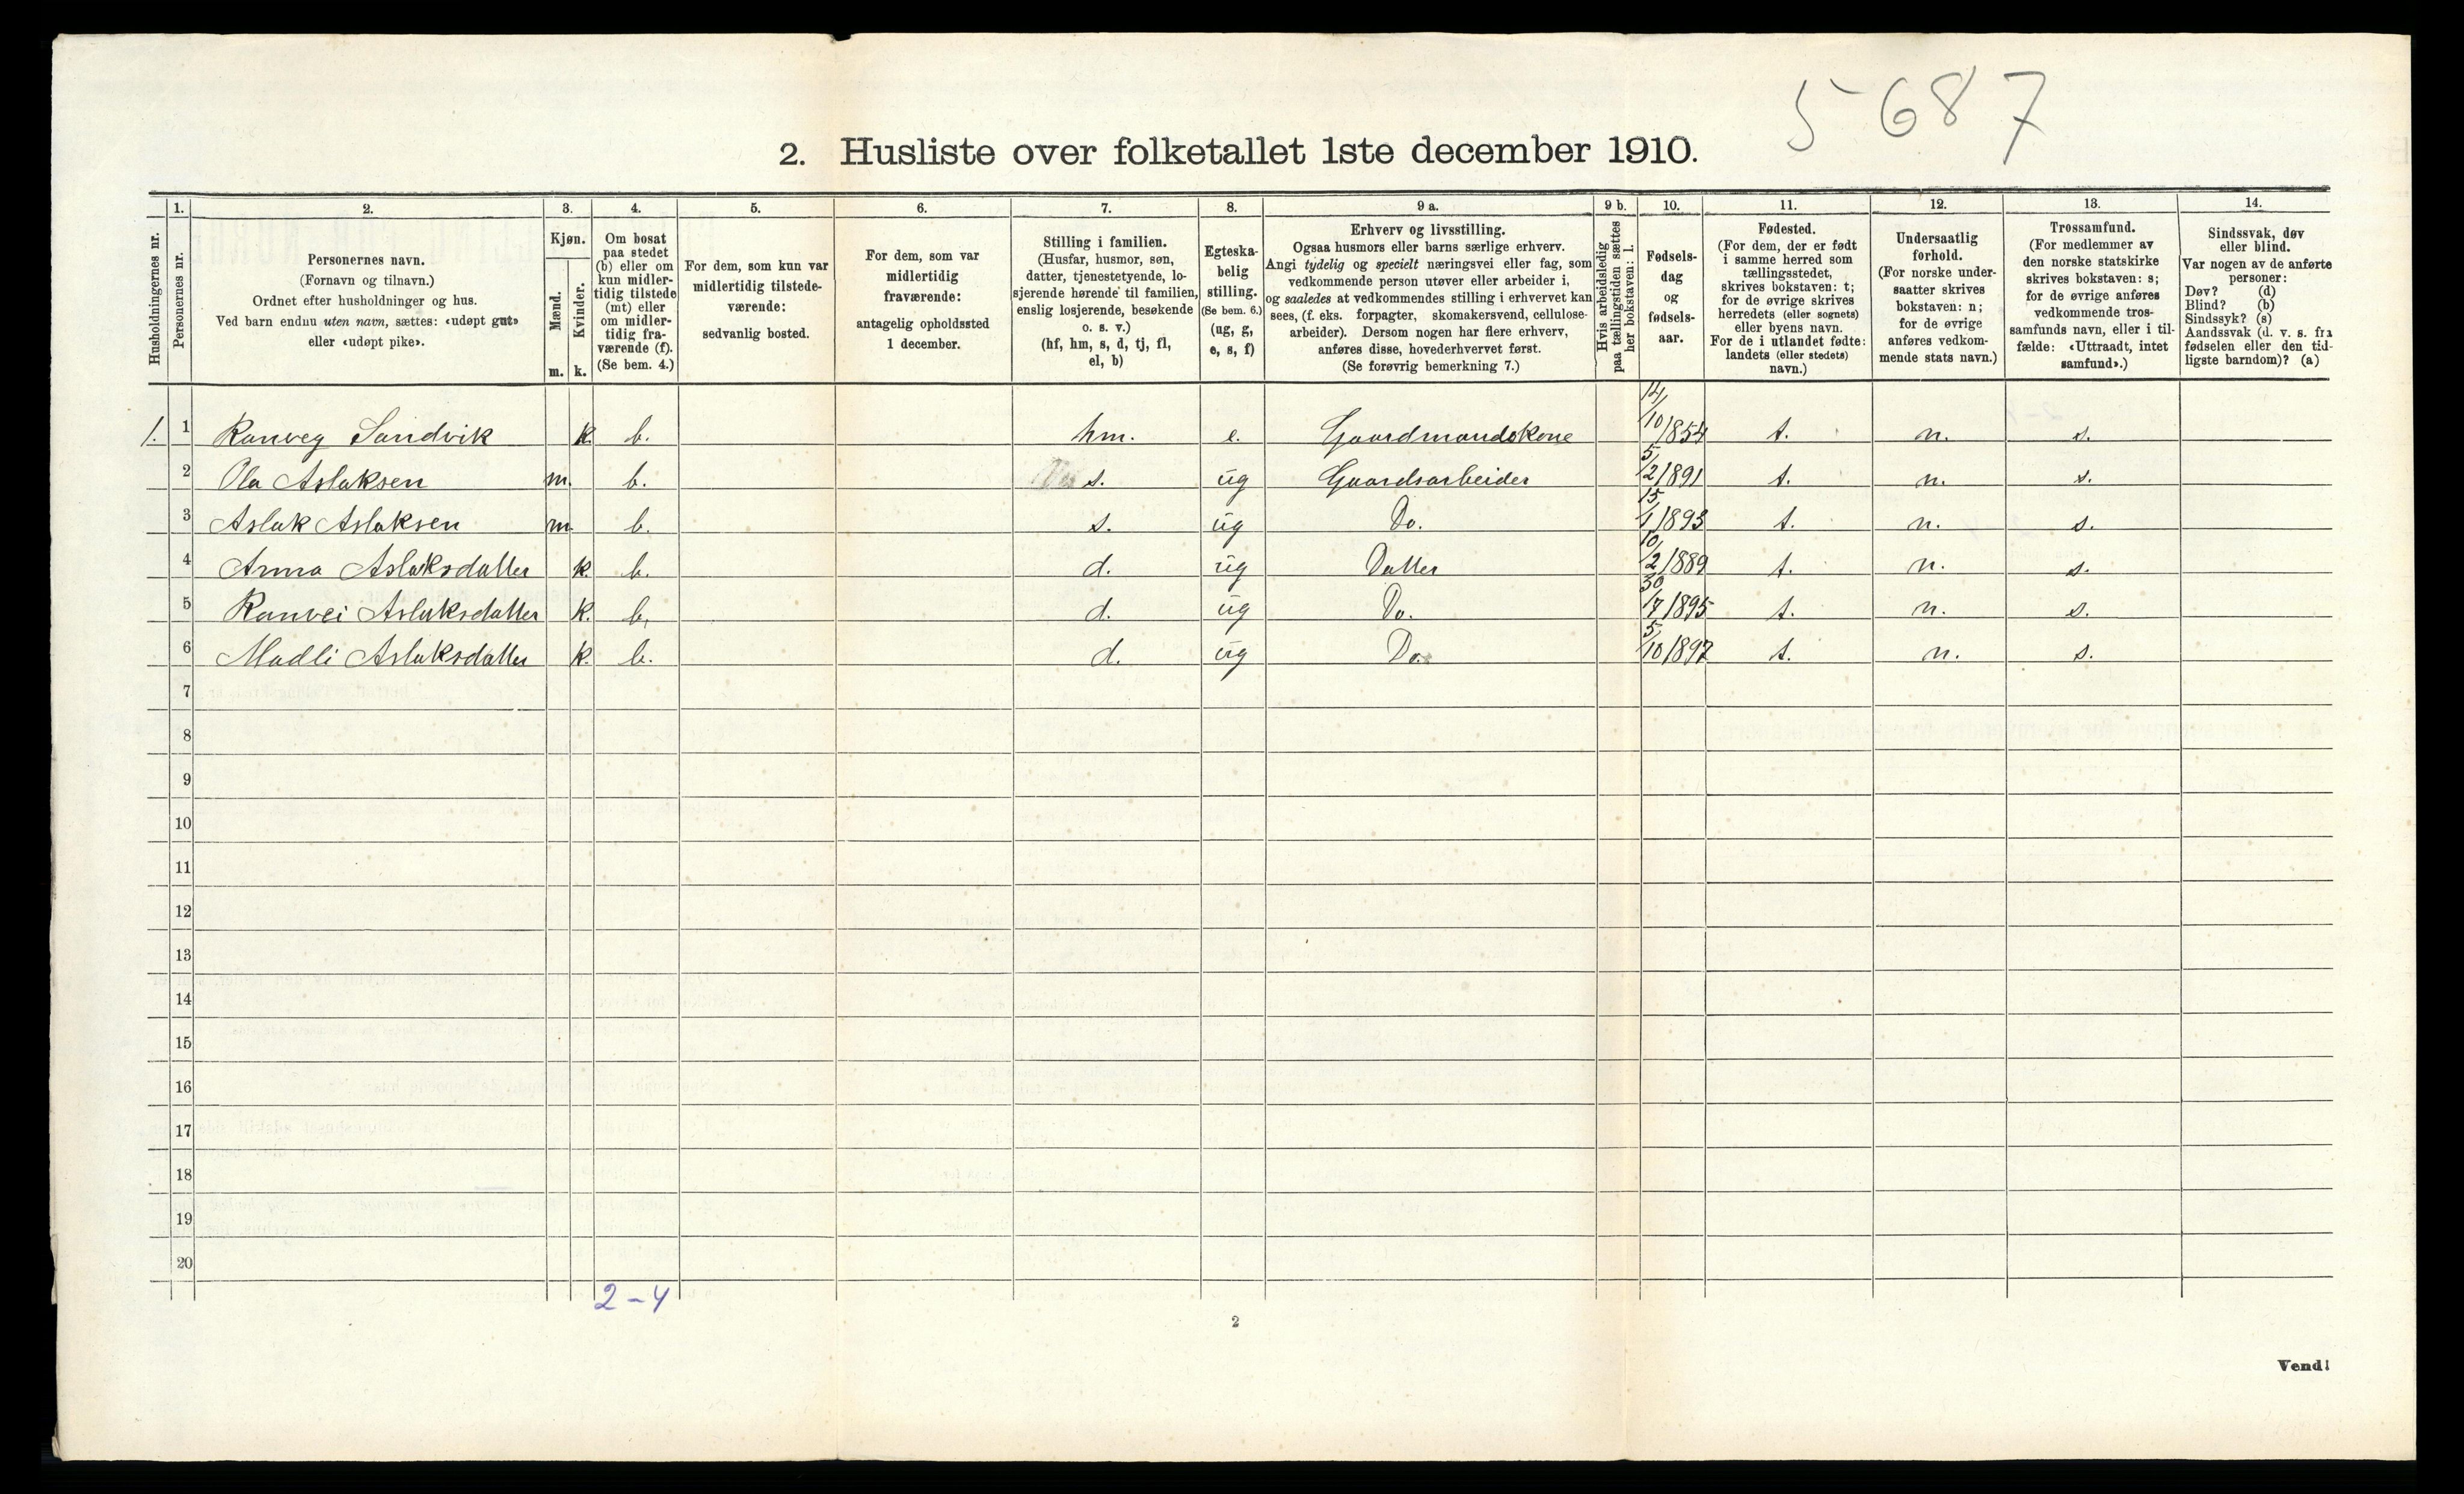 5687
2. Husliste over folketallet 1ste december 1910.
1. 2. 3. 4. 5. 6. 7. 8. 9 a. 9 b. 10. 11. 12. 13. 14.
Husholdningernes nr.
Personernes nr.
Personernes navn.
(Fornavn og tilnavn.)
Ordnet efter husholdninger og hus.
Ved barn endnu uten navn, sættes: «udøpt gut»
eller «udøpt pike».
Kjøn.
Mænd.
Kvinder.
m. k.
Om bosat
paa stedet
(b) eller om
kun midler-
tidig tilstede
(mt) eller
om midler-
tidig fra-
værende (f).
(Se bem. 4.)
For dem, som kun var
midlertidig tilstede-
værende:
sedvanlig bosted.
For dem, som var
midlertidig
fraværende:
antagelig opholdssted
1 december.
Stilling i familien.
(Husfar, husmor, søn,
datter, tjenestetyende, lo-
sjerende hørende til familien,
enslig losjerende, besøkende
o. s. v.)
(hf, hm, s, d, tj, fl,
el, b)
Egteska-
belig
stilling.
(Se bem. 6.)
(ug, g,
e, s, f)
Erhverv og livsstilling.
Ogsaa husmors eller barns særlige erhverv.
Angi tydelig og specielt næringsvei eller fag, som
vedkommende person utøver eller arbeider i,
og saaledes at vedkommendes stilling i erhvervet kan
sees, (f. eks. forpagter, skomakersvend, cellulose-
arbeider). Dersom nogen har flere erhverv,
anføres disse, hovederhvervet først.
(Se forøvrig bemerkning 7.)
Hvis arbeidsledig
paa tællingstiden sættes
her bokstaven: l.
Fødsels-
dag
og
fødsels-
aar.
Fødested.
(For dem, der er født
i samme herred som
tællingsstedet,
skrives bokstaven: t;
for de øvrige skrives
herredets (eller sognets)
eller byens navn.
For de i utlandet fødte:
landets (eller stedets)
navn.)
Undersaatlig
forhold.
(For norske under-
saatter skrives
bokstaven: n;
for de øvrige
anføres vedkom-
mende stats navn.)
Trossamfund.
(For medlemmer av
den norske statskirke
skrives bokstaven: s;
for de øvrige anføres
vedkommende tros-
samfunds navn, eller i til-
fælde: «Uttraadt, intet
samfund».)
Sindssvak, døv
eller blind.
Var nogen av de anførte
personer:
Døv? (d)
Blind? (b)
Sindssyk? (s)
Aandssvak (d. v. s. fra
fødselen eller den tid-
ligste barndom)? (a)
1. 1 Ranveg Sandvik k. b. hm. e. Gaardmandskone 14/10 1854 t. n. s.
2 Ola Aslaksen m. b. s. ug Gaardsarbeider 5/2 1891 t. n. s.
3 Aslak Aslaksen m b. s. ug Do. 15/1 1893 t. n. s.
4 Anna Aslaksdatter k. b. d. ug Datter 10/2 1889 t. n. s.
5 Ranvei Aslaksdatter k. b. d. ug Do. 30/7 1895 t. n. s.
6 Madli Aslaksdatter k. b. d. ug Do. 5/10 1897 t. n. s.
7
8
9
10
11
12
13
14
15
16
17
18
19
20
2-4
2
Vend!